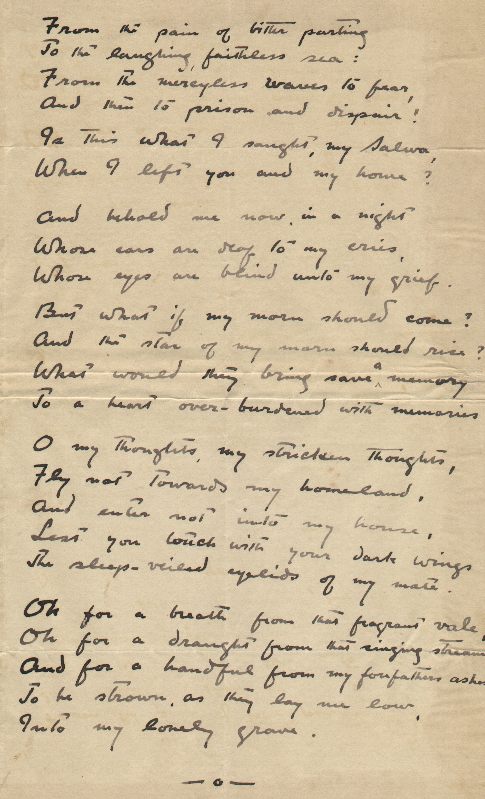 From the pain of bitter parting
To the laughing, faithless sea:
From the mercyless waves to fear,
And then to prison and dispair!
Is this what I saught, my Salwa,
When I left you and my home?
And behold me now, in a night
Whose ears are deaf to my cries,
Whose eyes are blind unto my grief.
But what if my morn should come?
And the star of my morn should rise?
What would they bring save a memory
To a heart over-burdened with memories
O my thoughts, my stricken thoughts,
Fly not towards my homeland,
And enter not into my house,
Lest you touch with your dark wings
The sleep-veiled eyelids of my mate.
Oh for a breath from that fragrant vale,
Oh for a draught from that singing stream
And for a handful from my forefathers ashes
To be strown, as they lay me low,
Into my lonely grave.
— o —